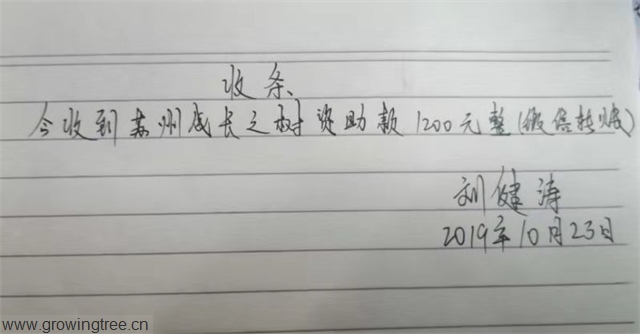 收条
今收到苏州成长之树资助款1200元整(微信转账)
刘健涛
2019年10月23日
www.growingtree.cn